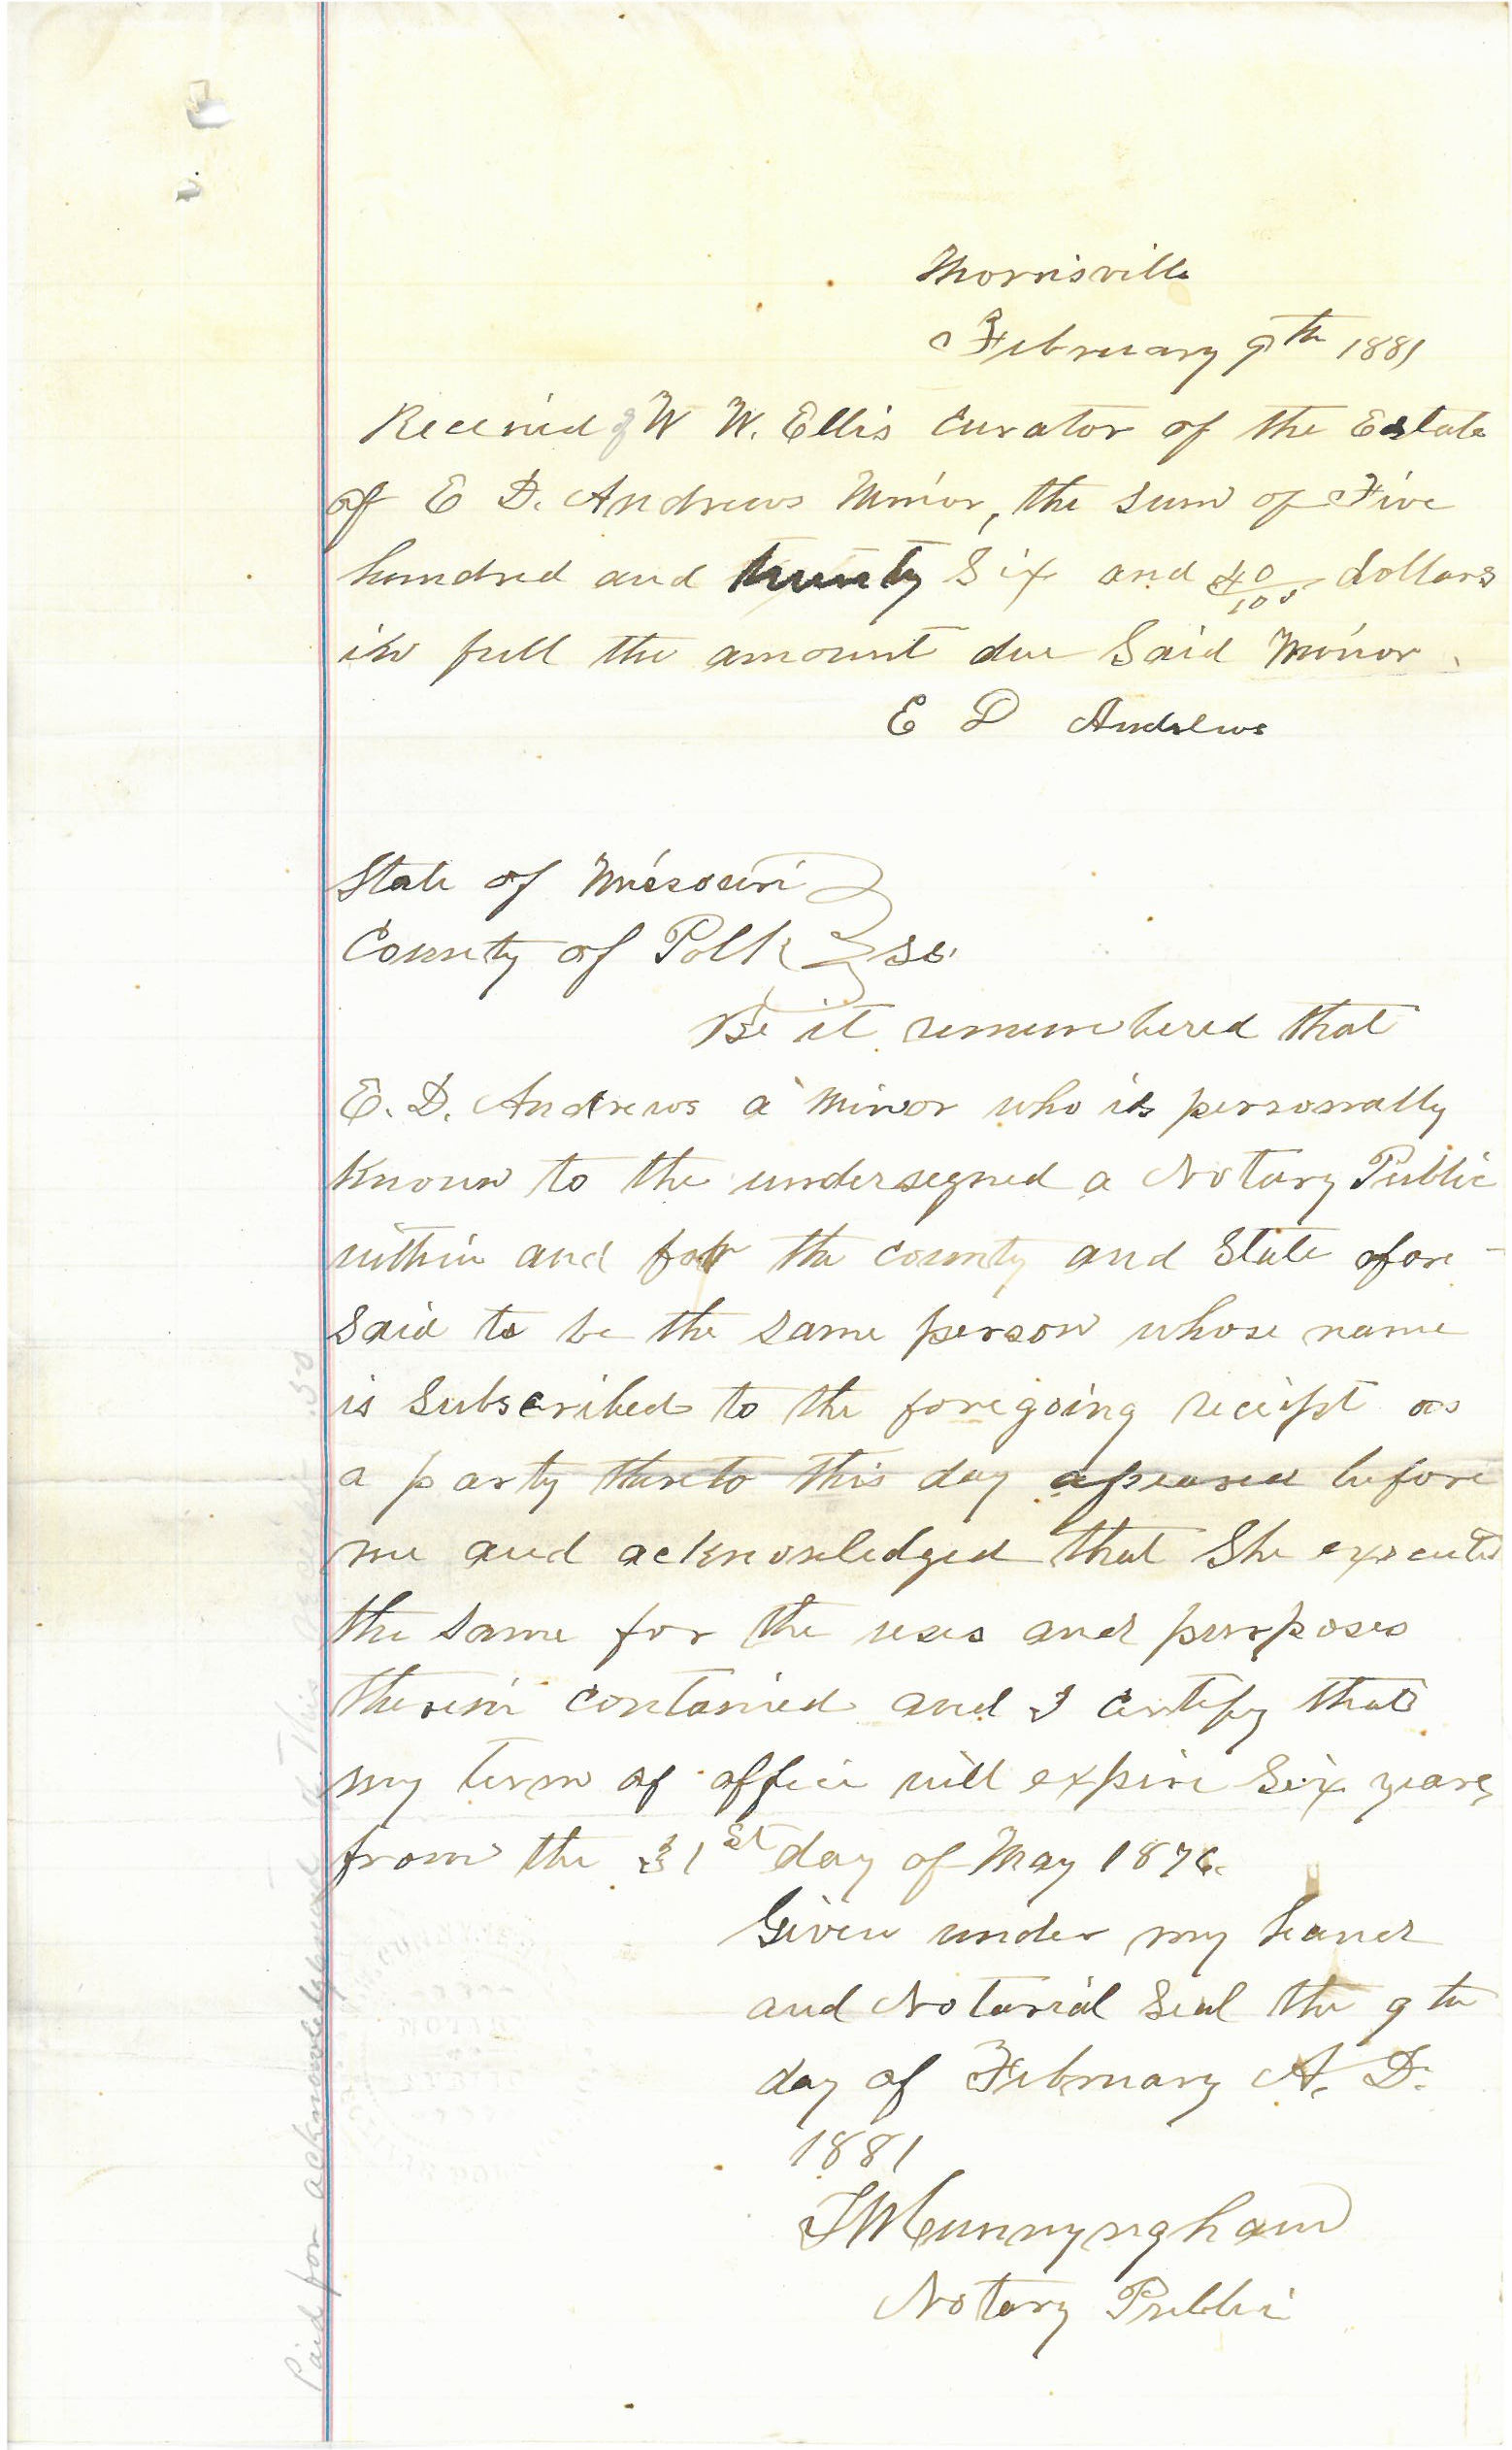 Morrisville
February 9th 1881
Received of W W. Ellis Curator of the Estate
of E D. Andrews Minor, the sum of Five
hundred and twenty Six and 40/100 dollars
in full the amount due Said Minor.
E D Andrews
State of Missouri
County of Polk } ss.
Be it remembered that
E. D. Andrews a Minor who is personally
Known to the undersegned a Notary Public
within and for the county and State afore-
Said to be the same person whose name
is Subscribed to the foregoing receipt as
a party thereto this day apeared before
me and acknowledged that She executed
the same for the uses and purposes
therein contained and I certify that
my term of office will expire Six years
from the 31st day of May 1876.
Given under my hand
and Notarial Seal the 9th
day of February A. D.
1881
Cunnyngham
Notary Public
Paid for acknowledgment of This receipt .50